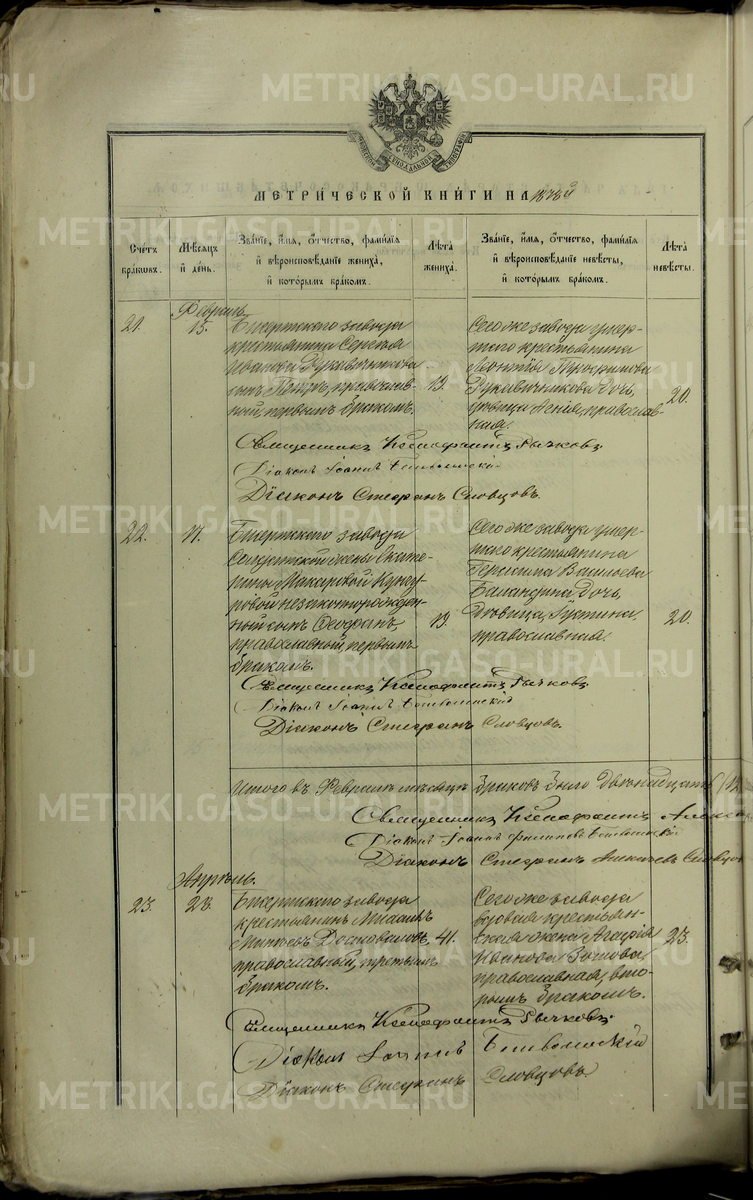 METRIKI.GASO-URAL.RU
МЕТРИЧЕСКОЙ КНИГИ НА 1878й
Счетъ браковъ.
Мѣсяцъ и день.
Званіе, имя, отчество, фамилія и вѣроисповѣданіе жениха, и которымъ бракомъ.
Лѣта жениха.
Званіе, имя, отчество, фамилія и вѣроисповѣданіе невѣсты, и которымъ бракомъ.
Лѣта невѣсты.
Февраль
21.
15.
завода
крестьянина Сергѣя
Иванова Рукавичникова
сынъ Петръ, православ-
ный, первымъ бракомъ.
19.
Сего же завода умер-
шаго крестьянина
Леонтія
Рукавичникова дочь,
дѣвица Ксенія, православ-
ная.
20.
Священникъ Ксенофонтъ Рычковъ
Діаконъ Іоаннъ
Діаконъ Стефанъ Словцовъ.
22.
17.
завода
Солдатской жены Екате-
рины Макаровой
незаконнорожден-
ный сынъ Ѳеофанъ,
православный, первымъ
бракомъ.
19.
Сего же завода умер-
шаго крестьянина
Герасима Васильева
Баландина дочь,
дѣвица Густина,
православная.
20.
Священникъ Ксенофонтъ Рычковъ
Діаконъ Іоаннъ
Діаконъ Стефанъ Словцовъ.
Итого въ Февралѣ мѣсяцѣ браковъ было двѣнадцать (12
Священникъ Ксенофонтъ
Діаконъ Іоаннъ Филиповъ
Діаконъ Стефанъ
Апрѣль.
23.
28.
завода
крестьянинъ
православный, третьимъ
бракомъ.
41.
Сего же завода
вдовая крестьян-
ская жена Агафія
Иванова Зотова,
православная, вто-
рымъ бракомъ.
23.
Священникъ Ксенофонтъ Рычковъ
Діаконъ Іоаннъ
Діаконъ Стефанъ Словцовъ.